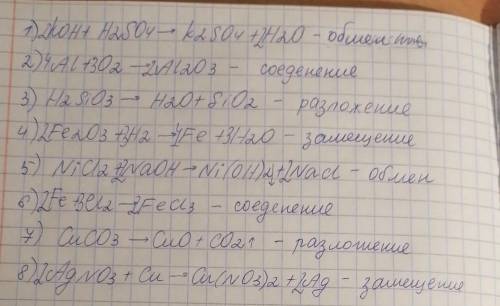 1) 2KOH + H2SO4 → K2SO4 + 2H2O - обмен
2) 4Al + 3O2 → 2Al2O3 - соеденение
3) H2SiO3 → H2O + SiO2 - разложение
4) 2Fe2O3 + 3H2 → 4Fe + 3H2O - замещение
5) NiCl2 + 2NaOH → Ni(OH)2 + 2NaCl - обмен
6) 2Fe + 3Cl2 → 2FeCl3 - соеденение
7) CuCO3 → CuO + CO2↑ - разложение
8) 2AgNO3 + Cu → Cu(NO3)2 + 2Ag - замещение